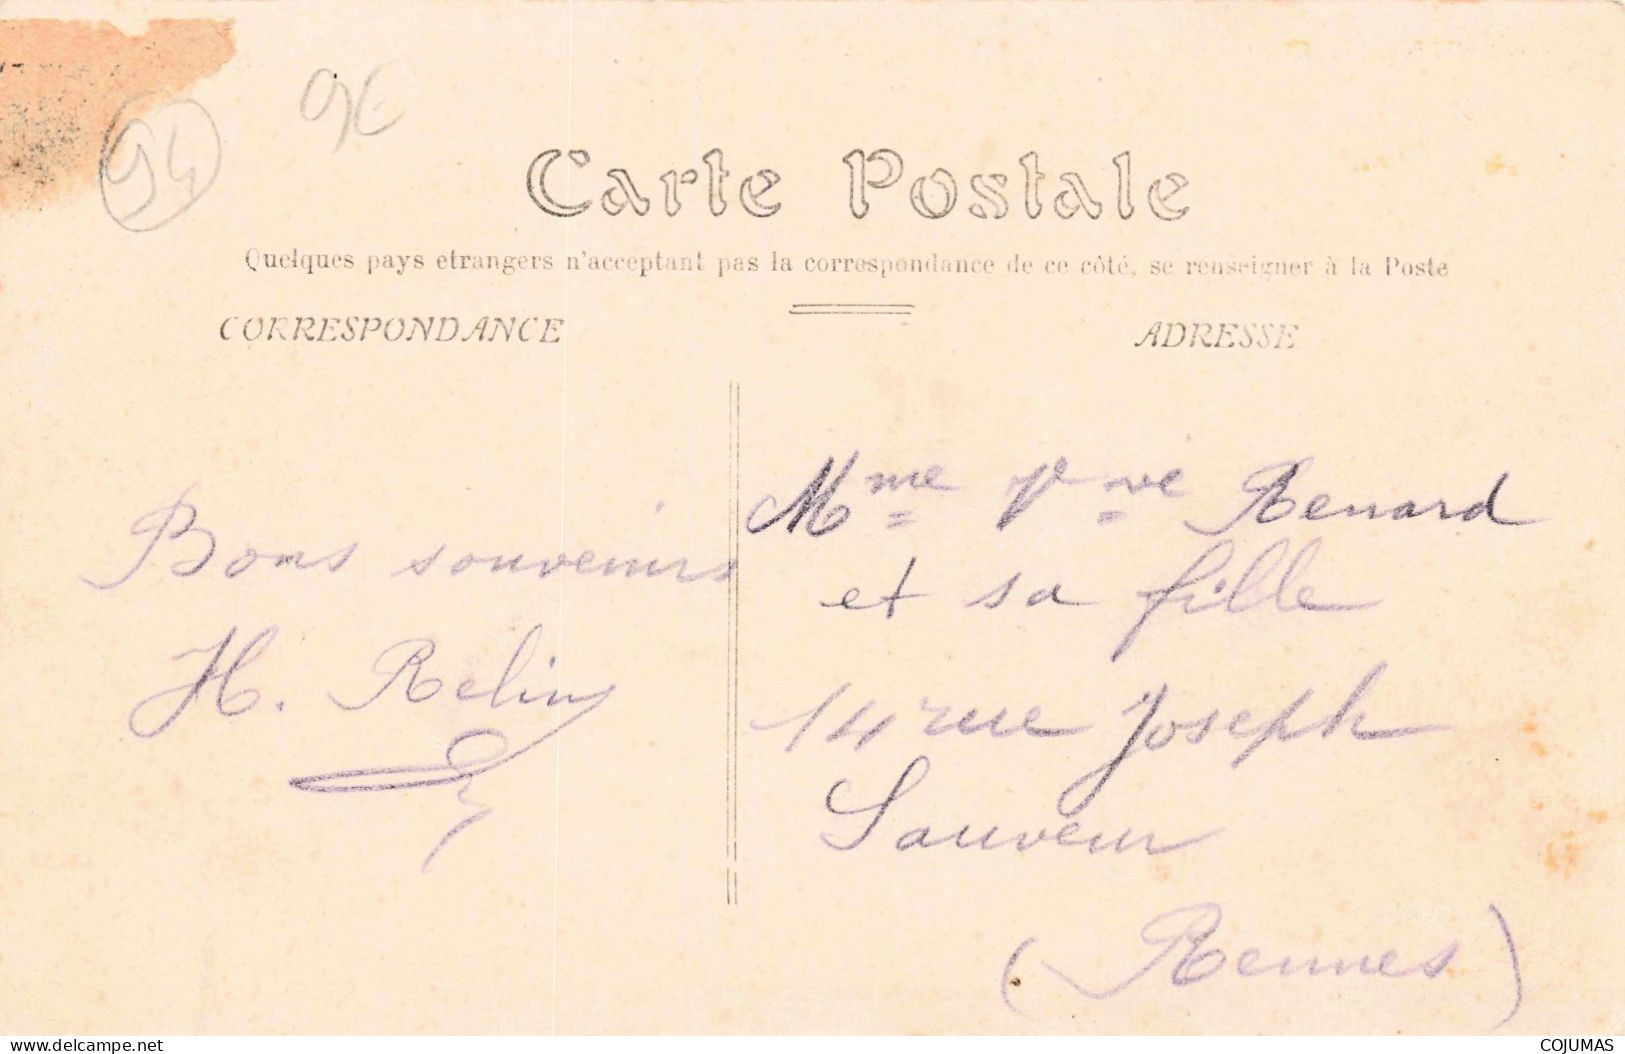 94
9E
Carte Postale
Quelques pays etrangers n'acceptant pas la correspondance de ce côté, se renseigner à la Poste
CORRESPONDANCE
ADRESSE
Bons souvenirs
H. Relin
Mme Vve Renard
et sa fille
14 rue Joseph
Sauveur
(Rennes)
www.delcampe.net
COJUMAS